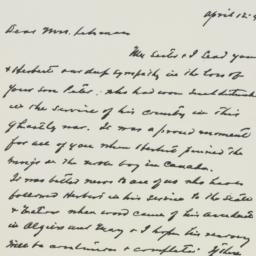 April 12-4
Dear Mrs. Lehman
My sister & I send you
& Herbert our deep sympathy in the loss of
your son Peter, who had won such distinction
in the service of his country in this
ghastly war. It was a proud moment
for all of you when Herbert pinned the
wings on the noble boy in Canada.
It was bitter news to all of us who have
followed Herbert in his service to the State
& Nation when word came of his accident
in Algiers and Mary & I hope his recovery
will be continuous & complete. If there